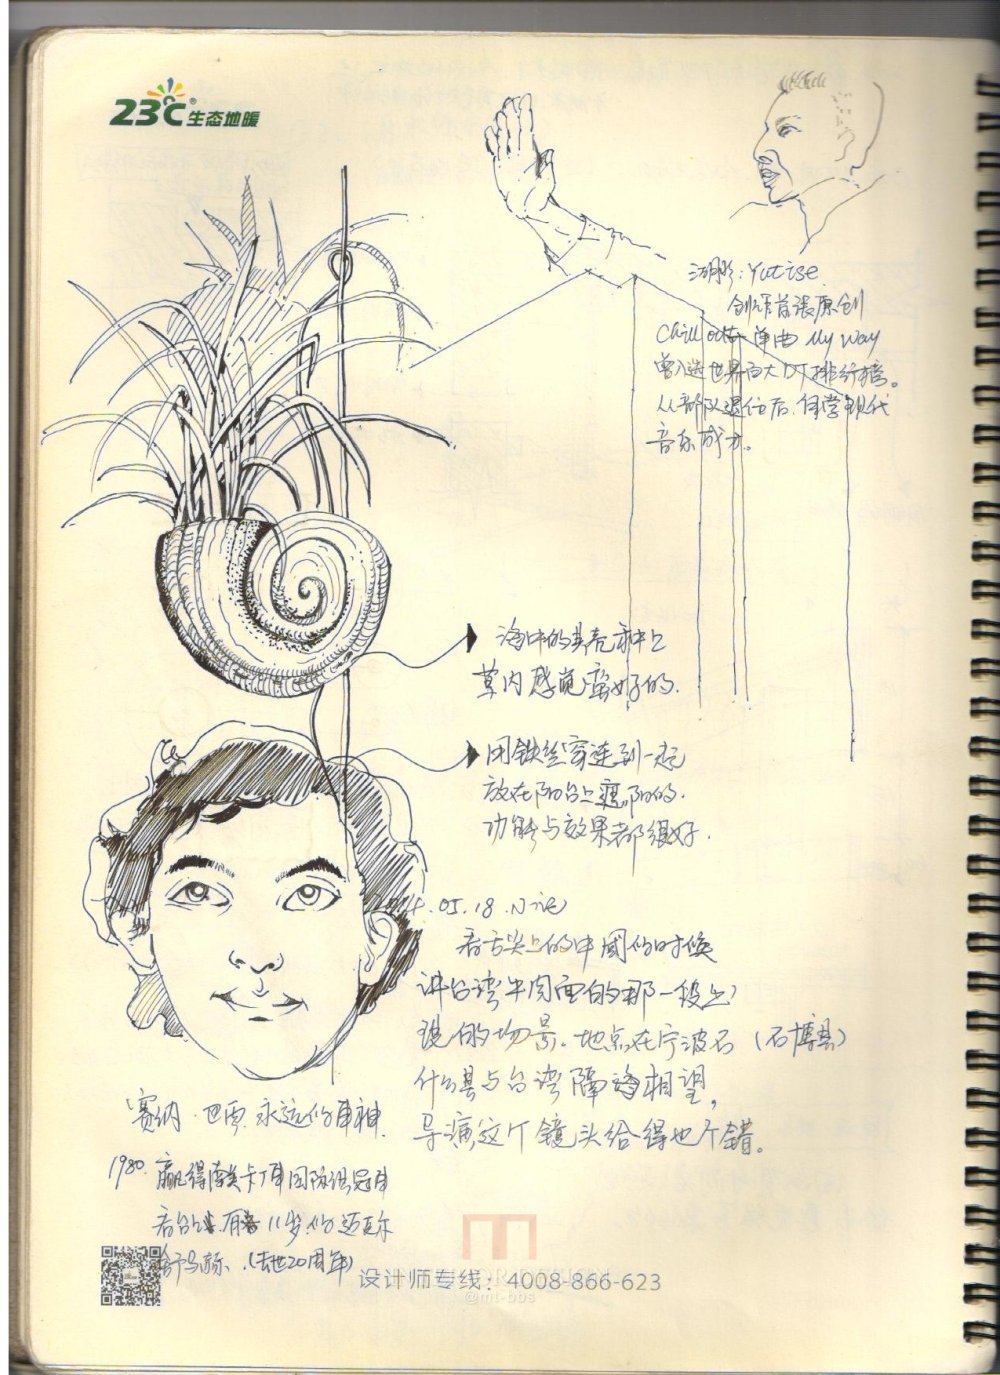 23℃®生态地暖
Yutise
创作首张原创
Chill out 单曲 My Way
曾入选世界百大DJ排行榜。
从部队退伍后,自学现代
音乐成才。
海中的贝壳种上
草内感觉蛮好的.
用铁丝穿连到一起
放在阳台上 的.
功能与效果都很好.
.05.18.
看舌尖上的中国的时候
讲台湾牛肉面的那一段
说的场景。地点在宁波石
什么县与台湾隔海相望,
导演这个镜头给得也不错。
塞纳.巴 永远的车神.
1980. 赢得 卡丁车国际 冠军
看台上 有 11岁的迈克尔
舒马赫.(去世20周年)
设计师专线:4008-866-623
@mt-bbs